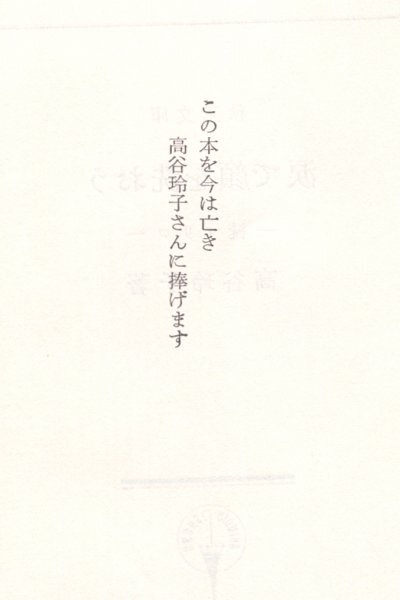 この本を今は亡き
高谷玲子さんに捧げます